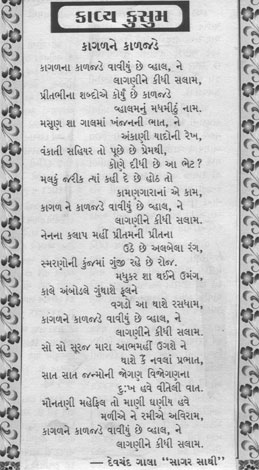 કાવ્ય કુસુમ
કાગળને કાળજડે
કાગળના કાળજડે વાવીયું છે વ્હાલ, ને
લાગણીને કીધી સલામ,
પ્રીતભીના શબ્દોએ કોર્યું છે કાળજડે
વ્હાલમનું મધમીઠું નામ.
મસૃણ શા ગાલમાં ખંજનની ભાત, ને
અંકાણી યાદોની રેખ,
વંકાતી સહિયર તો પૂછે છે પ્રેમથી,
કોણે દીધી છે આ ભેટ?
મલકું જરીક ત્યાં કહી દે છે હોઠ તો
કામણગારાનાં એ કામ,
કાગળ ને કાળજડે વાવીયું છે વ્હાલ, ને
લાગણીને કીધી સલામ.
નેનના કલાપ મહીં પ્રીતમની પ્રીતના
ઉઠે છે અલબેલા રંગ,
સ્મરણોની કુંજમાં ગુંજી રહે છે રોજ.
મધુકર શા થઈને ઉમંગ,
કાલે અંબોડલે ગુંથાશે ફૂલને
વગડો આ થાશે રસધામ,
કાગળને કાળજડે વાવીયું છે વ્હાલ, ને
લાગણીને કીધી સલામ.
સો સો સૂરજ મારા આભમહીં ઉગશે ને
થાશે કૈં નવલાં પ્રભાત,
સાત સાત જન્મોની જોગણ વિજોગણના
દુ:ખ હવે વીતેલી વાત.
મૌનતણી મહેફિલ તો માણી ઘણીય હવે
મળીએ ને રમીએ અવિરામ,
કાગળને કાળજડે વાવીયું છે વ્હાલ, ને
લાગણીને કીધી સલામ.
— દેવચંદ ગાલા “સાગર સાથી”